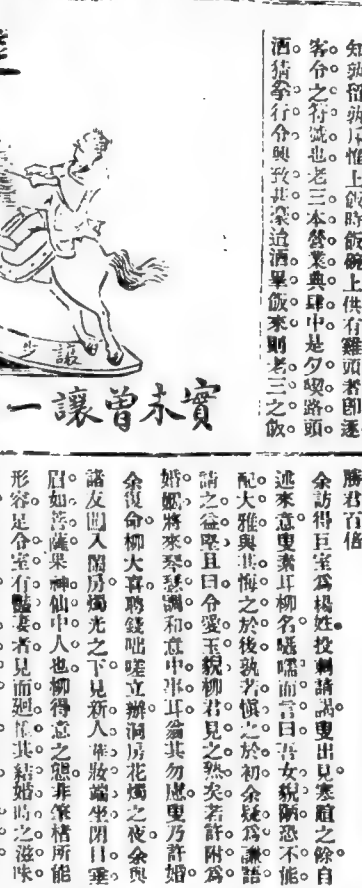 知孰留孰月惟上飯時飯碗上供有雞頭者卽逐
客令之符號也老三本營業典肆中是夕喫路頭
酒猜拳行令興致甚濠迨酒畢飯來則老三之飯
步 譔
實未曾讓一
勝君百倍
余訪得巨室爲楊姓投刺請謁叟出見寒暄之餘自
述來意叟素耳柳名囁嚅而言曰吾女貌陋恐不能
配大雅與其悔之於後孰若愼之於初余疑爲謙語
請之益堅且曰令愛玉貌柳君見之熟矣若許附爲
婚姻將來琴瑟調和意中事耳翁其勿慮叟乃許婚
余復命柳大喜聘錢咄嗟立辦洞房花燭之夜余與
諸友闖入閨房燭光之下見新人華妝端坐閉目垂
眉如菩薩果神仙中人也柳得意之態非筆楮所能
形容足令室有豔妻者見而迴憶其結婚時之滋味